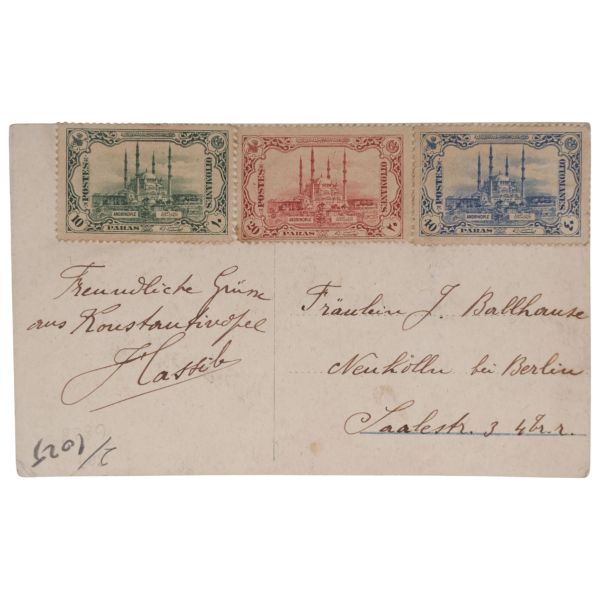 POSTES OTTOMANES
ANDRINOPLE
10 PARAS ١٠
POSTES OTTOMANES
ANDRINOPLE
20 PARAS ٢٠
POSTES OTTOMANES
ANDRINOPLE
40 PARAS ٤٠
Freundliche Grüsse
aus Konstantinopel
Hassib
Fräulein J. Ballhause
Neukölln bei Berlin
Saalestr. 3 4Tr. r.